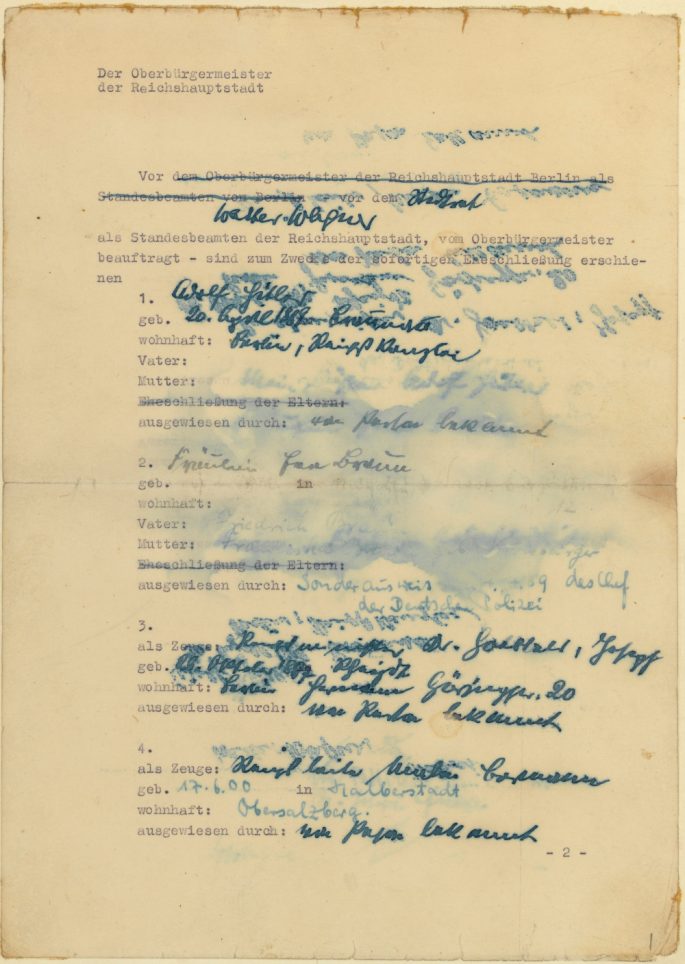 Der Oberbürgermeister
der Reichshauptstadt
Vor dem Oberbürgermeister der Reichshauptstadt Berlin als
Standesbeamten von Berlin - vor dem Stadtrat
Walter Wagner
als Standesbeamten der Reichshauptstadt, vom Oberbürgermeister
beauftragt - sind zum Zwecke der sofortigen Eheschließung erschie-
nen
1. Adolf Hitler
geb. 20. April 1889 Braunau
wohnhaft: Berlin, Reichskanzlei
Vater:
Mutter:
Eheschließung der Eltern:
ausgewiesen durch: von Person bekannt
2. Fräulein Eva Braun
geb. in
wohnhaft:
Vater: Friedrich Braun
Mutter:
Eheschließung der Eltern:
ausgewiesen durch: Sonderausweis des Chef
der Deutschen Polizei
3.
als Zeuge: Reichsminister Dr. Goebbels, Josef
geb. Rheydt
wohnhaft: Berlin Hermann Göringstr. 20
ausgewiesen durch: von Person bekannt
4.
als Zeuge: Reichsleiter Martin Bormann
geb. 17.6.00 in Halberstadt
wohnhaft: Obersalzberg.
ausgewiesen durch: von Person bekannt
- 2 -